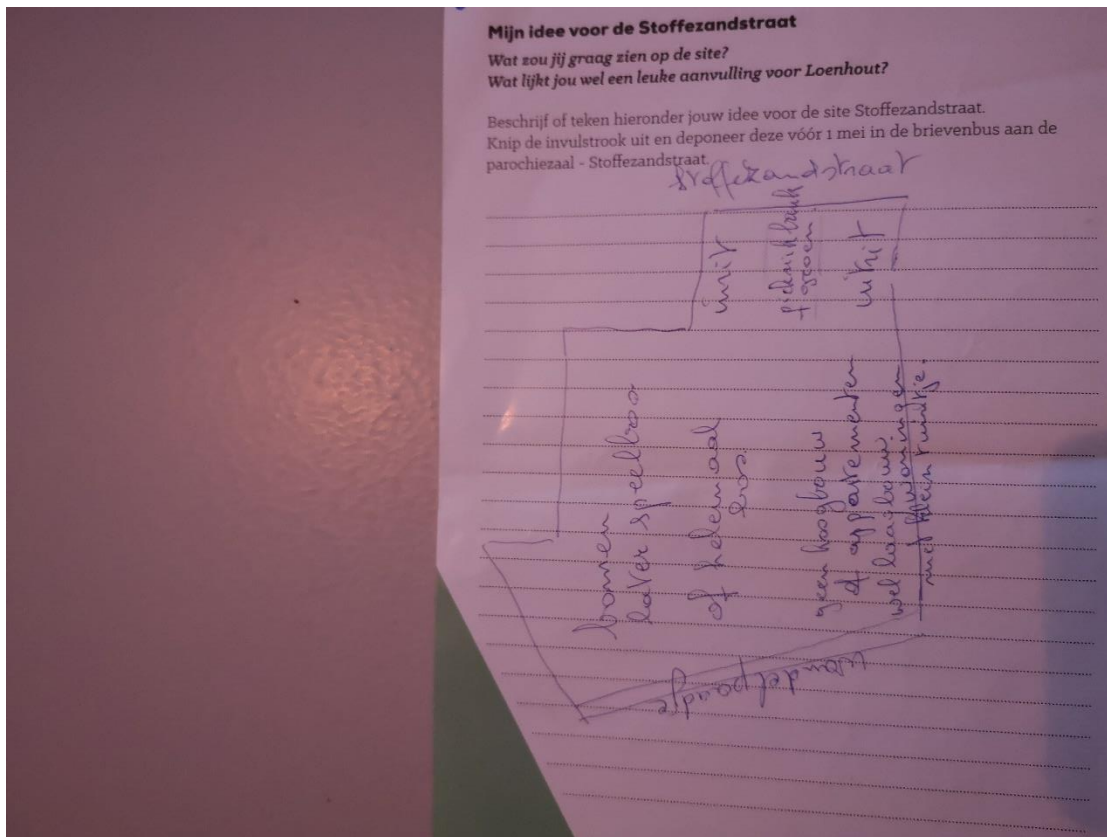 Mijn idee voor de Stoffezandstraat
Wat zou jij graag zien op de site?
Wat lijkt jou wel een leuke aanvulling voor Loenhout?
Beschrijf of teken hieronder jouw idee voor de site Stoffezandstraat.
Knip de invulstrook uit en deponeer deze vóór 1 mei in de brievenbus aan de
parochiezaal - Stoffezandstraat.
Stoffezandstraat
inrit
picknickbank
+ groen
uitrit
bomen
later speelbos
of helemaal
bos.
geen hoogbouw
of appartementen
wel laagbouw
woningen
met klein tuintje.
wandelpaadje